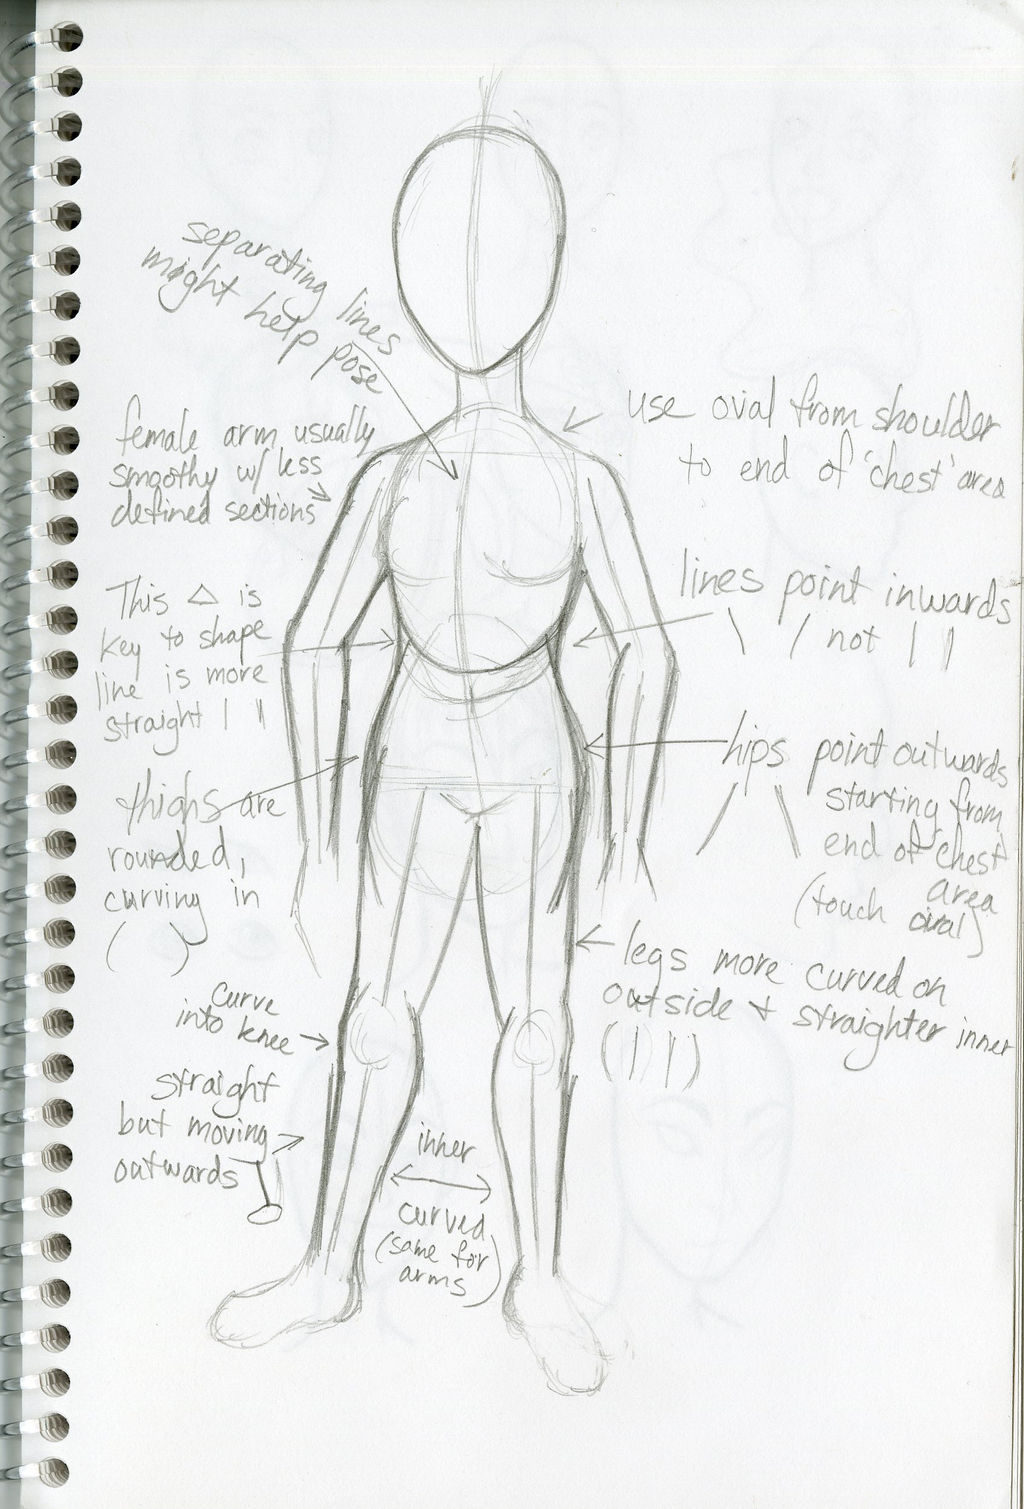 separating lines
might help pose
female arm usually
smoothy w/ less
defined sections
This △ is
key to shape
line is more
straight | ||
thighs are
rounded,
curving in
( )
curve
into knee
straight
but moving
outwards
inner
curved
(same for
arms)
use oval from shoulder
to end of 'chest' area
lines point inwards
\ / not | |
hips point outwards
/ \
starting from
end of 'chest'
area
(touch oval)
legs more curved on
outside + straighter inner
( | | )